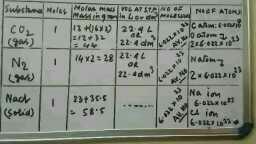 Substance Moles Molar Mass Mass in gram Vol at STP in L or dm³ No of Molecules No of Atoms
CO₂ (gas) 1 12+(16×2) =12+32 =44 22.4 L OR 22.4 dm³ 6.022×10²³
O atom 2×6.022×10²³
N₂ (gas) 1 14×2=28 22.4 L OR 22.4 dm³ 6.022×10²³ N atom 2×6.022×10²³
NaCl (solid) 1 23+35.5 =58.5 ------ 6.022×10²³ Na ion 6.022×10²³ Cl ion 6.022×10²³